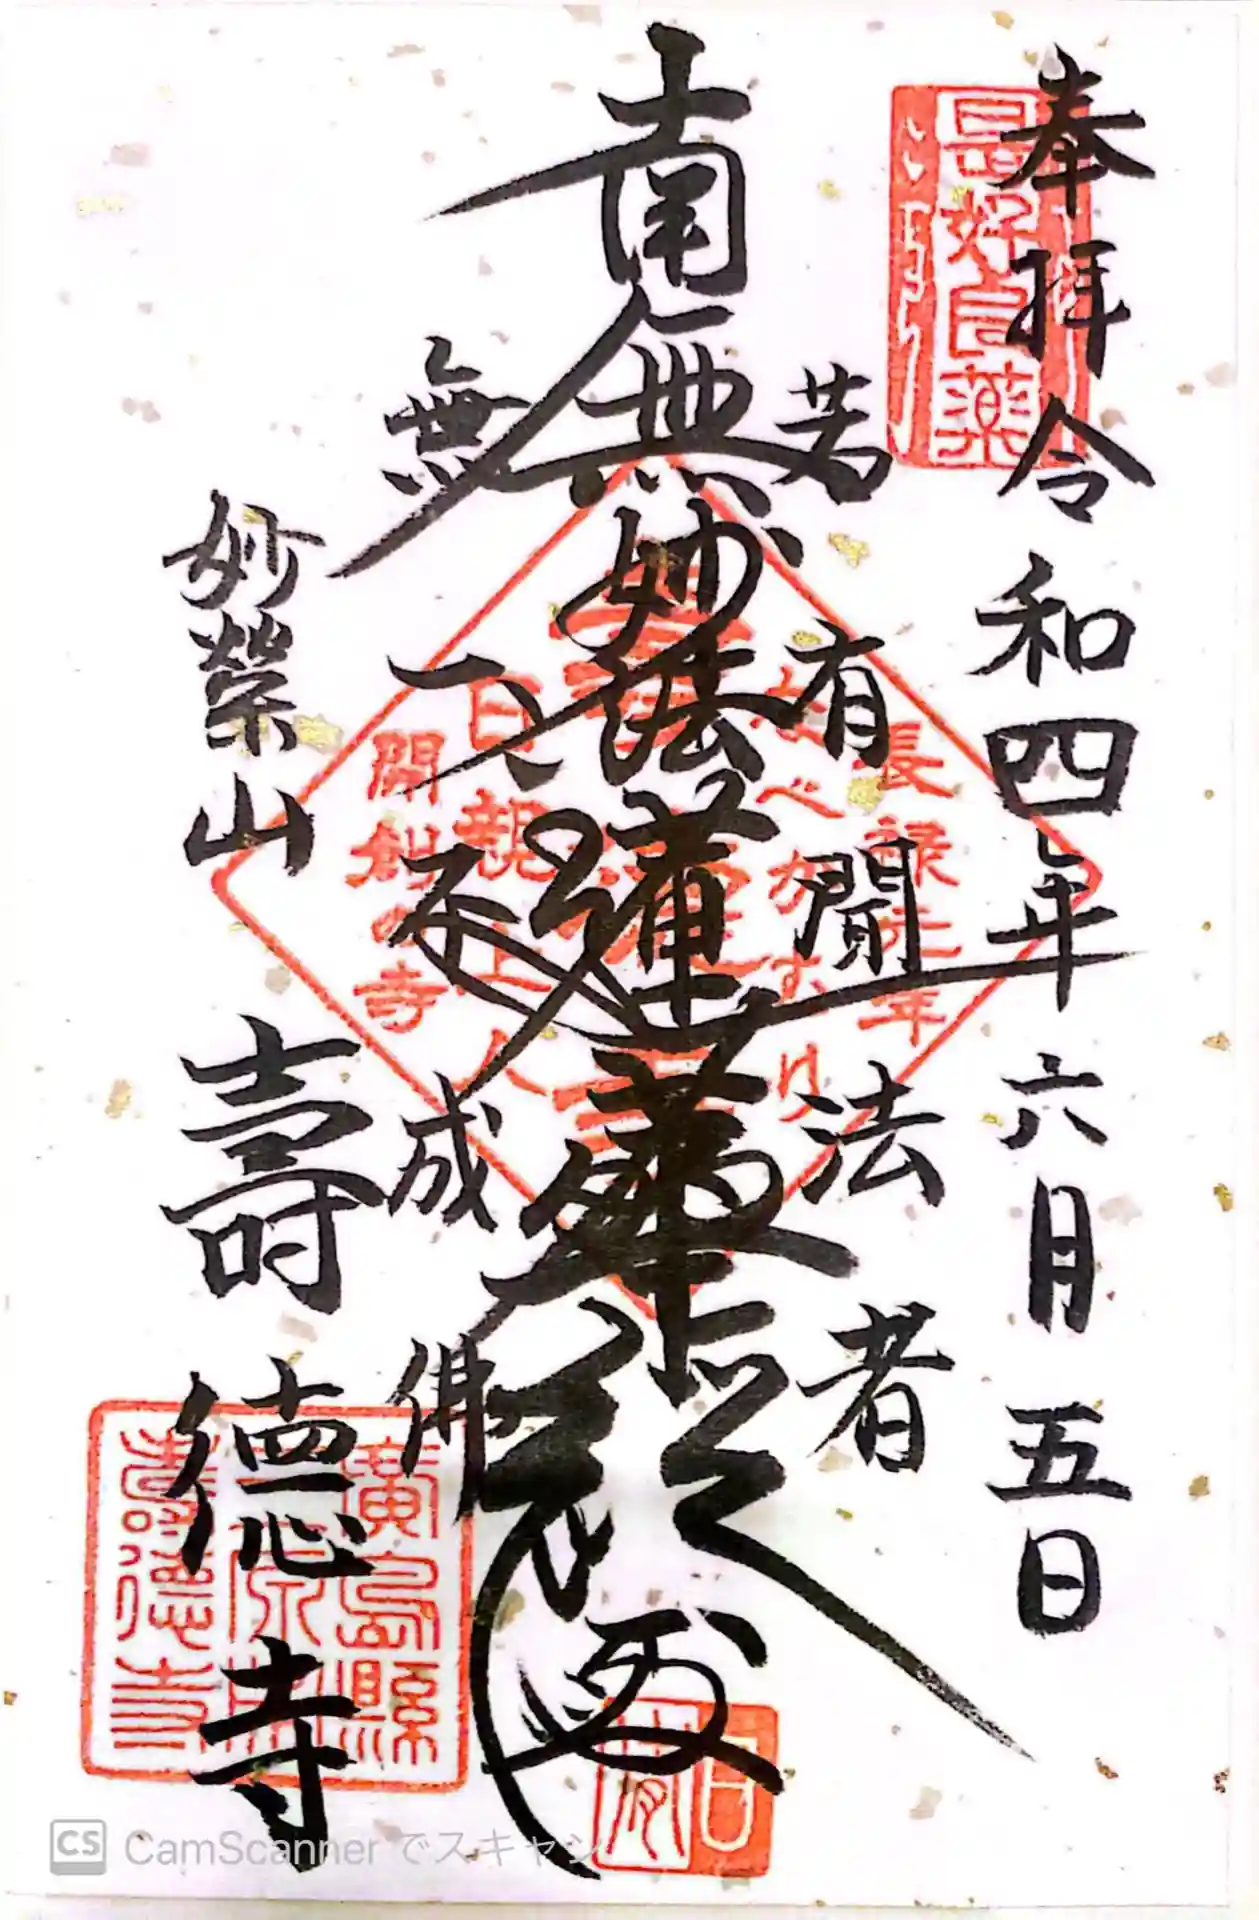 奉拝 令和四年六月五日
是好良薬
若有聞法者
南無妙法蓮華経
無一不成佛
妙榮山
壽德寺
長禄
日親上人
開創の寺
廣島縣
壽德寺
CS CamScanner でスキャン